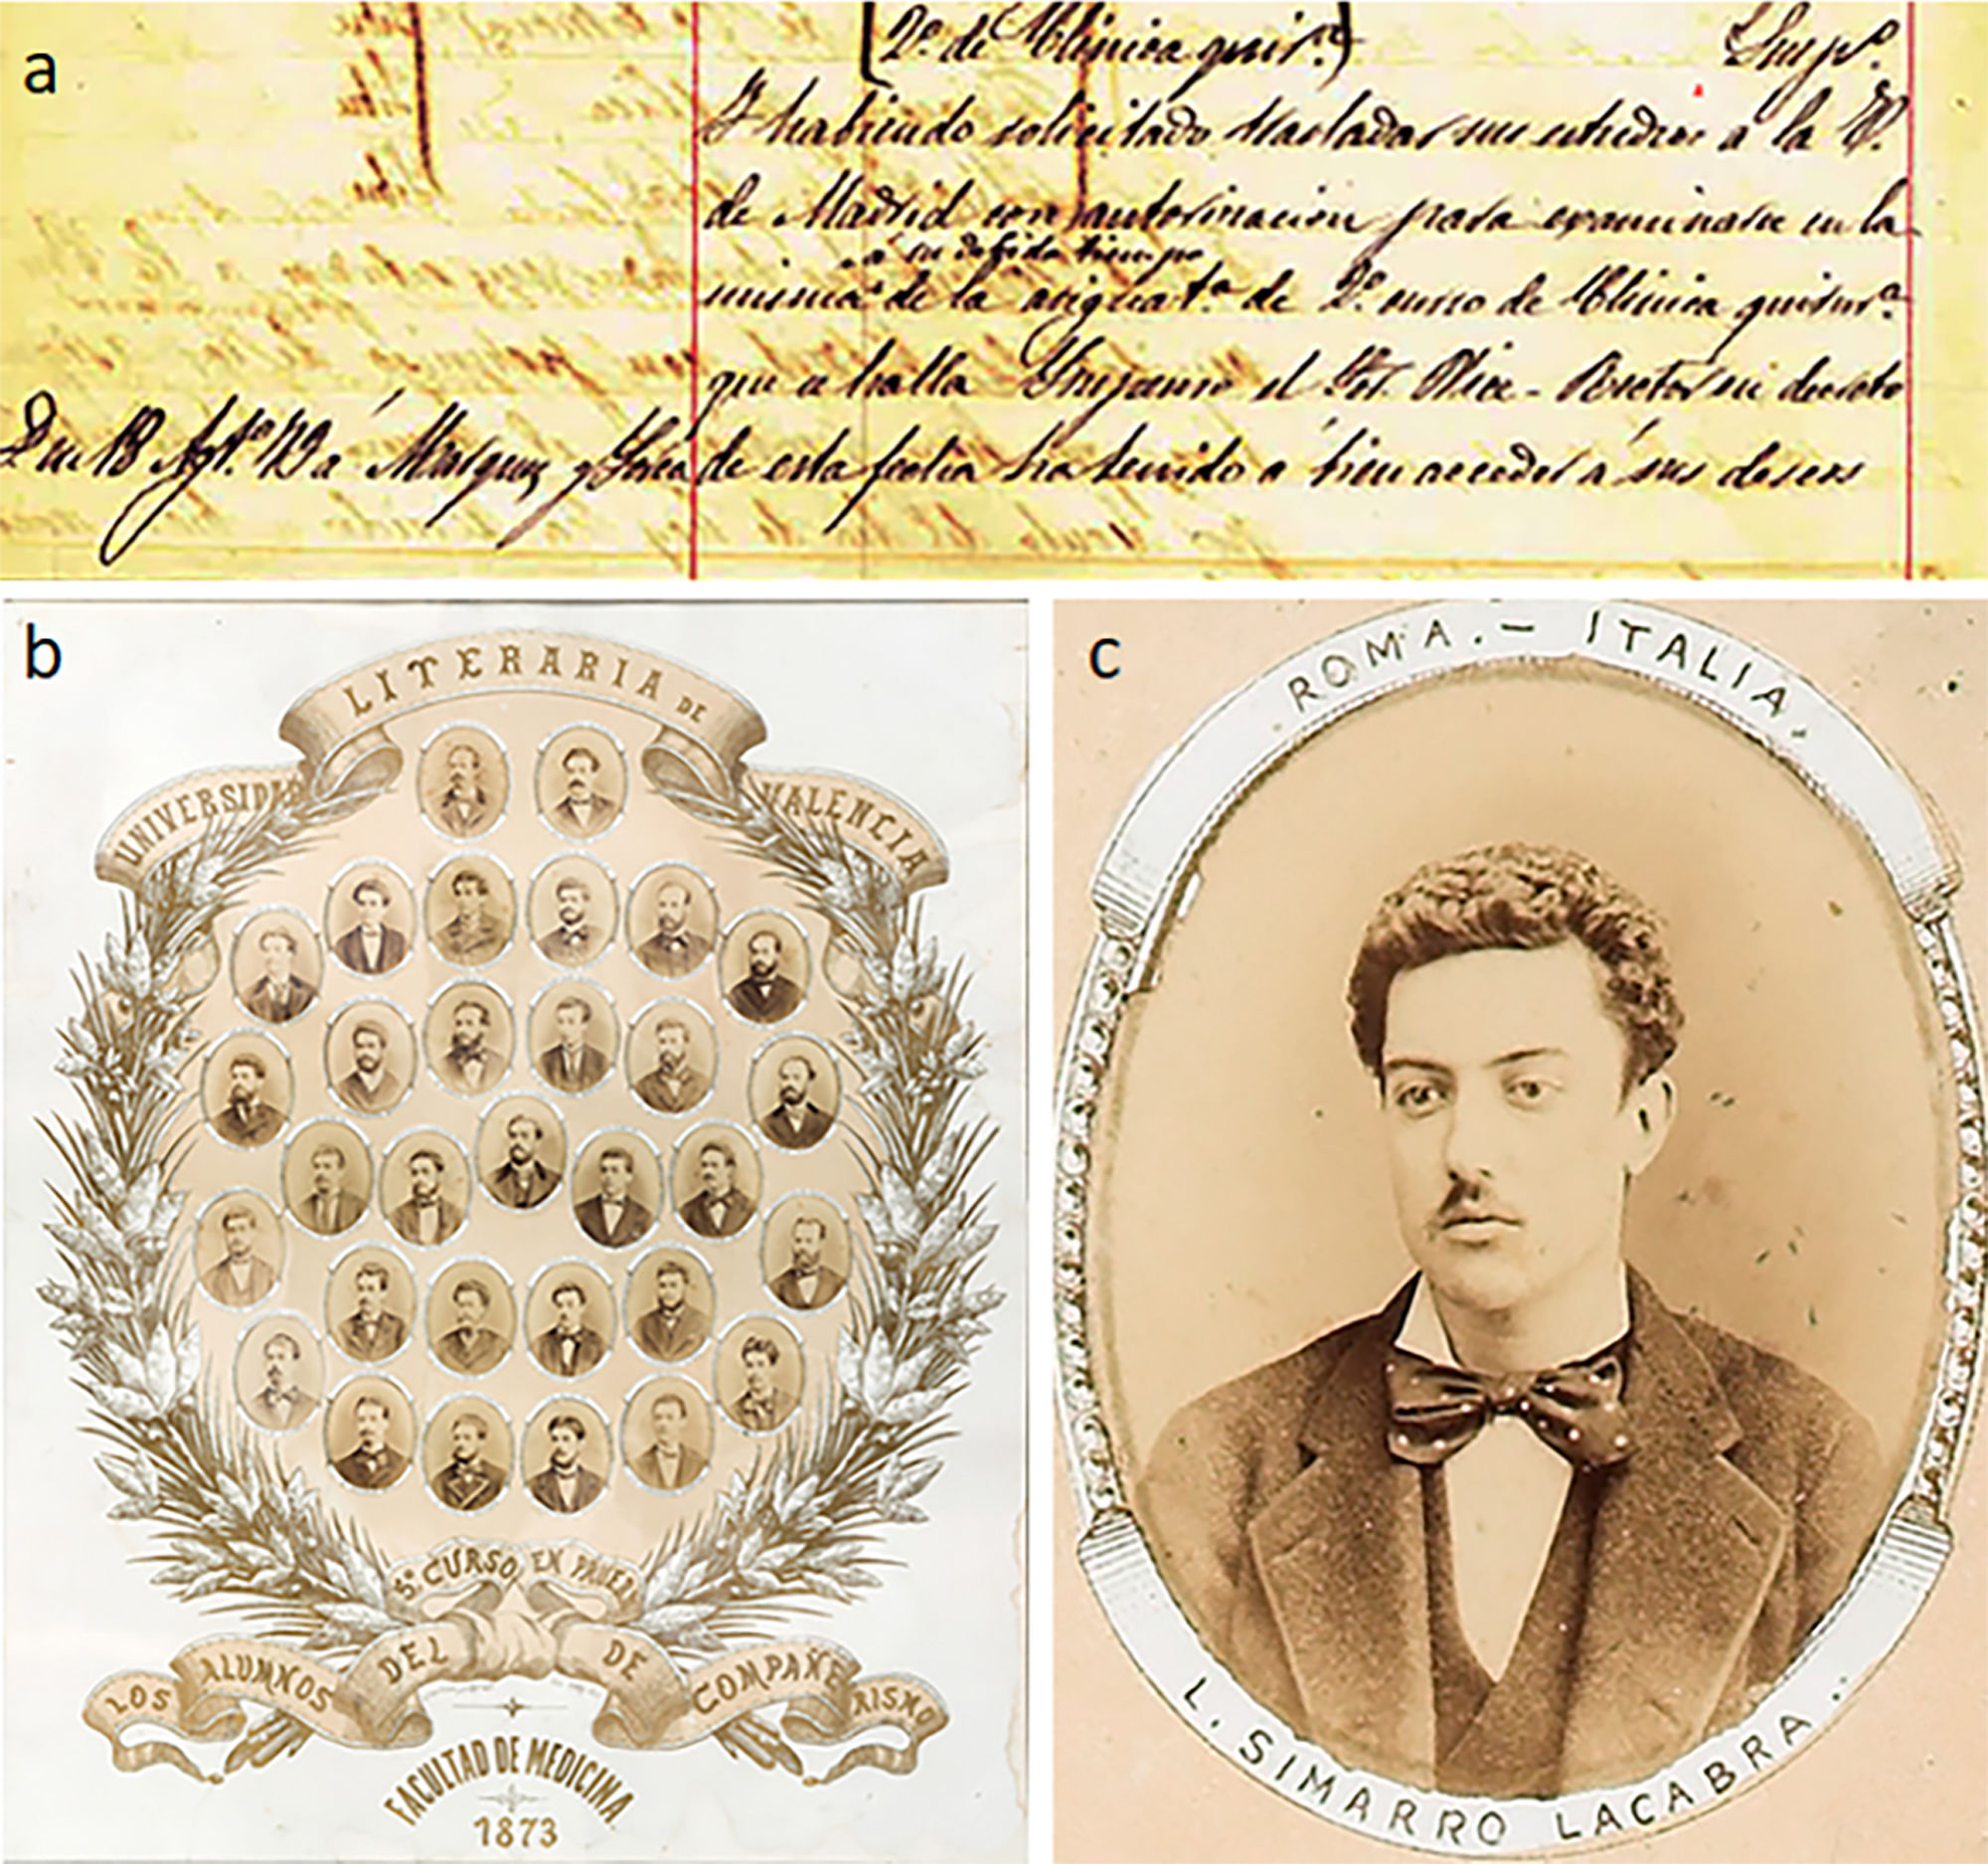 a
2º. de Clinica quirª.
Suspº.
Y habiendo solicitado trasladar sus estudios a la U.
de Madrid con autorizacion para examinarse en la
á su debido tiempo
misma de la asignatª. de 2º. curso de Clinica quirurª.
que se halla Suspenso el Sr. Vice-Rector en decreto
de esta fecha ha tenido a bien acceder á sus deseos
b
UNIVERSIDAD LITERARIA DE VALENCIA
5º CURSO EN PRUEBA
LOS ALUMNOS DEL DE COMPAÑERISMO
FACULTAD DE MEDICINA
1873
c
ROMA. - ITALIA.
L. SIMARRO LACABRA.